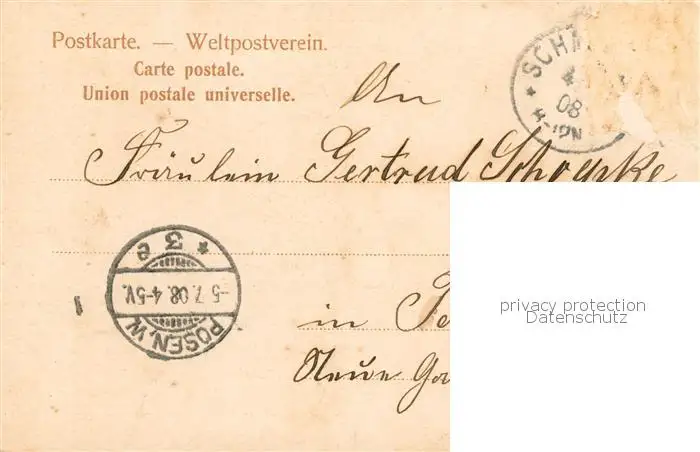 Postkarte. — Weltpostverein.
Carte postale.
Union postale universelle.
SCHA
08
An
Fräulein Gertrud
* 3 e
-5.7.08.4-5V.
POSEN.W.
in
Neue
privacy protection
Datenschutz